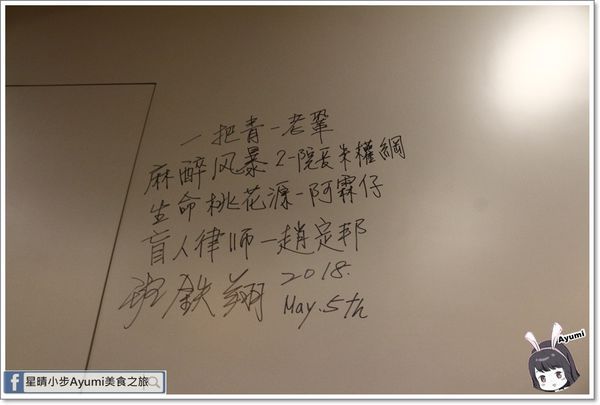 一把青-老鞏
麻醉风暴2-院長朱權綱
生命桃花源-阿霖仔
盲人律师-趙定邦
班鉄翔 2018.
May.5th
星晴小步Ayumi美食之旅
Ayumi